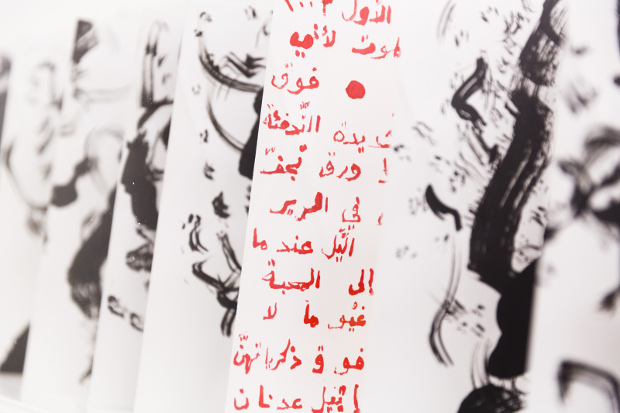 الأول ٢٠٠٣
لموت لأني
فوق
شديدة التدفئة
ورق تجفّ
في الحرير
اللّيل عندما
إلى المحبة
غيو ما لا
فوق ذكرياتهنّ
إيتيل عدنان